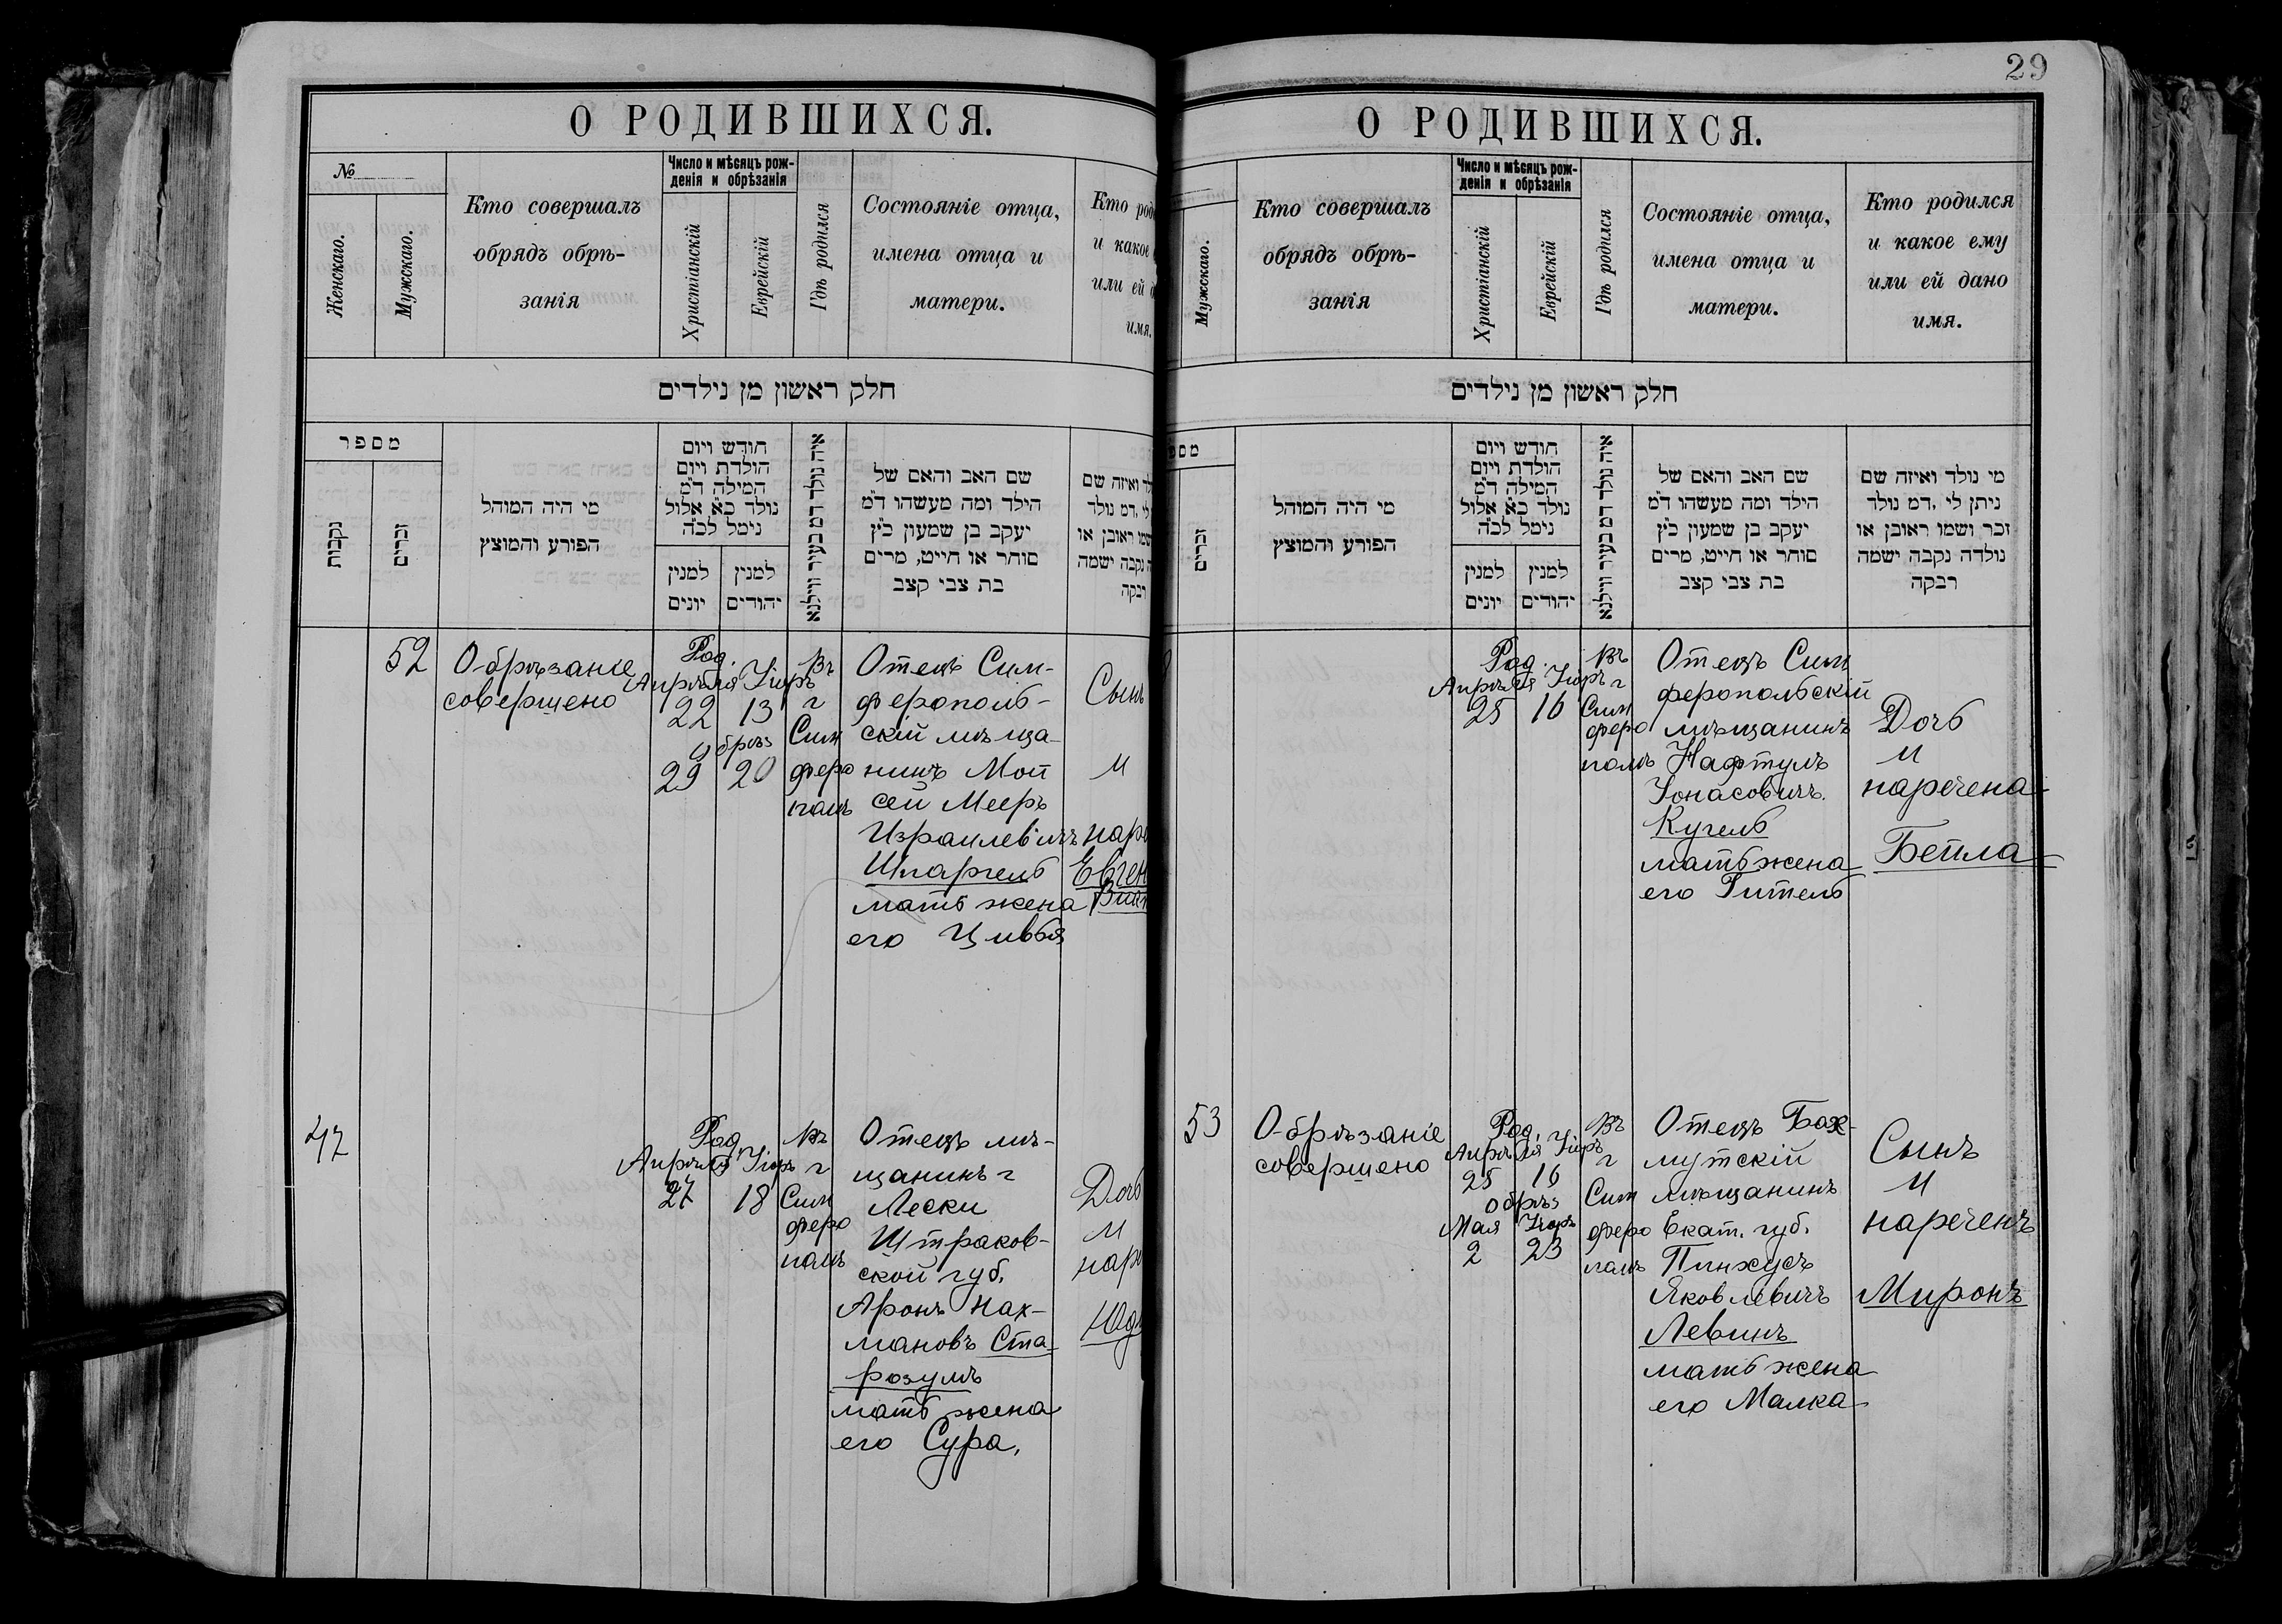 О РОДИВШИХСЯ.
№
Женскаго.
Мужскаго.
Кто совершалъ
обрядъ обрѣ-
занія
Число и мѣсяцъ рож-
денія и обрѣзанія
Христіанскій
Еврейскій
Гдѣ родился
Состояніе отца,
имена отца и
матери.
Кто род
и какое
или ей д
имя.
חלק ראשון מן נילדים
מספר
נקבות
זכרים
מי היה המוהל
הפורע והמוצץ
חודש ויום
הולדת ויום
המילה ד"מ
נולד כ"א אלול
נימל לכ"ה
למנין
יונים
למנין
יהודים
איה נולד דמ בעיר ווילנא
שם האב והאם של
הילד ומה מעשהו ד"מ
יעקב בן שמעון כ"ץ
סוחר או חייט, מרים
בת צבי קצב
לד ואיזה שם
לי ,דמ נולד
שמו ראובן או
ה נקבה ישמה
רבקה
52
Обрѣзаніе
совершено
Род.
Апрѣля Іюръ
22 13
Обрѣз
29 20
Въ
г
Сим
феро
полѣ
Отецъ Сим-
ферополь-
скій мѣща-
нинъ Мои
сей Мееръ
Израилевичъ
Шпаргель
мать жена
его Цивья
Сынъ
и
наре
Евген
47
Род.
Апрѣля Іюръ
27 18
Въ
г
Сим
феро
полѣ
Отецъ мѣ-
щанинъ г
Лески
Штраков-
ской губ.
Аронъ Нах-
мановъ Ста-
розумъ
мать жена
его Сура,
Дочь
и
наре
Юд
29
О РОДИВШИХСЯ.
Мужскаго.
Кто совершалъ
обрядъ обрѣ-
занія
Число и мѣсяцъ рож-
денія и обрѣзанія
Христіанскій
Еврейскій
Гдѣ родился
Состояніе отца,
имена отца и
матери.
Кто родился
и какое ему
или ей дано
имя.
חלק ראשון מן נילדים
מספ
זכרים
מי היה המוהל
הפורע והמוצץ
חודש ויום
הולדת ויום
המילה ד"מ
נולד כ"א אלול
נימל לכ"ה
למנין
יונים
למנין
יהודים
איה נולד דמ בעיר ווילנא
שם האב והאם של
הילד ומה מעשהו ד"מ
יעקב בן שמעון כ"ץ
סוחר או חייט, מרים
בת צבי קצב
מי נולד ואיזה שם
ניתן לי ,דמ נולד
זכר ושמו ראובן או
נולדה נקבה ישמה
רבקה
Род.
Апрѣля Іюръ
25 16
Въ
г
Сим
феро
полѣ
Отецъ Сим
феропольскій
мѣщанинъ
Нафтулъ
Іонасовичъ
Кугель
мать жена
его Гитель
Дочь
и
наречена
Бейла
53
Обрѣзаніе
совершено
Род.
Апрѣля Іюръ
25 16
обрѣз
Мая Іюръ
2 23
Въ
г
Сим
феро
полѣ
Отецъ Бах-
мутскій
мѣщанинъ
Екат. губ.
Пинхусъ
Яковлевичъ
Левинъ
мать жена
его Малка
Сынъ
и
нареченъ
Миронъ